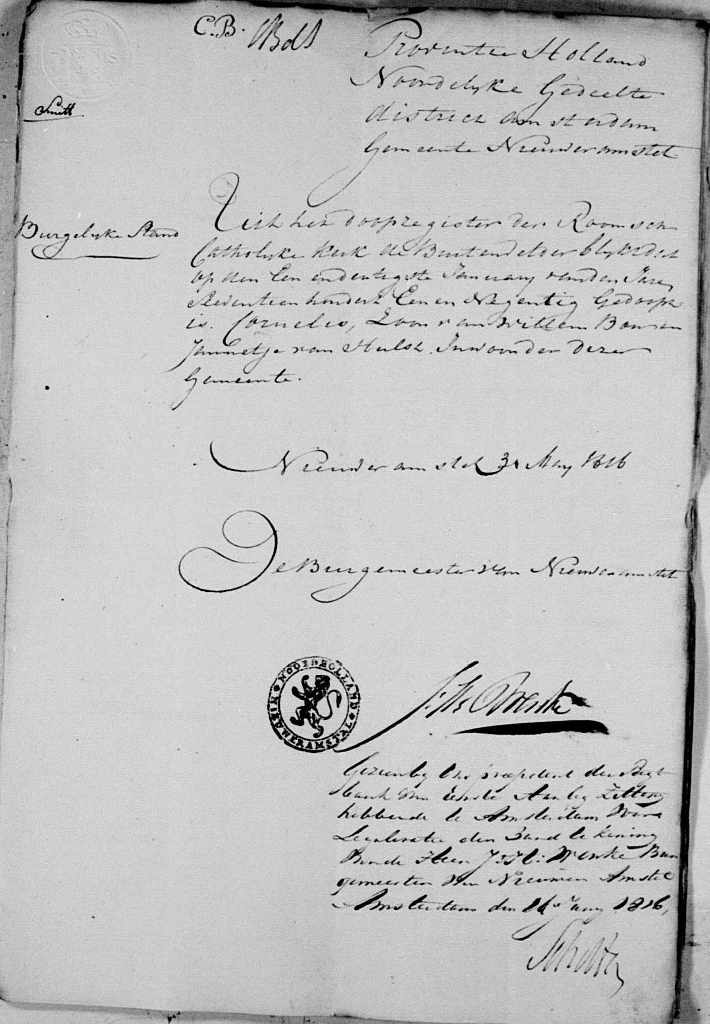 C.B.
Smitt
Provintie Holland
Noordelyke Gedeelte
district amsterdam
Gemeente Nieuweramstel
Burgelyke Stand
Uit het doopregister der Roomsch
Catholyke Kerk de Buitenvelder blykt dat
op den Een en dertigste January van den Jare
Zeventien hondert Een en Negentig Gedoopt
is. Cornelis, Zoon van Willem Bon en
Jannetje van Hulst. Inwoonder dezer
Gemeente.
Nieuwer amstel 31 May 1816
De Burgemeester van Nieuweramstel
NOORDHOLLAND
NIEUWERAMSTAL
Gezien by the president der Regt
bank van Eerste Aanleg Zitting
hebbende te Amsterdam voor
Legalisatie den hand te kening
van de Heer Wenke Bur
gemeester van Nieuwer Amstel
Amsterdam den 1816